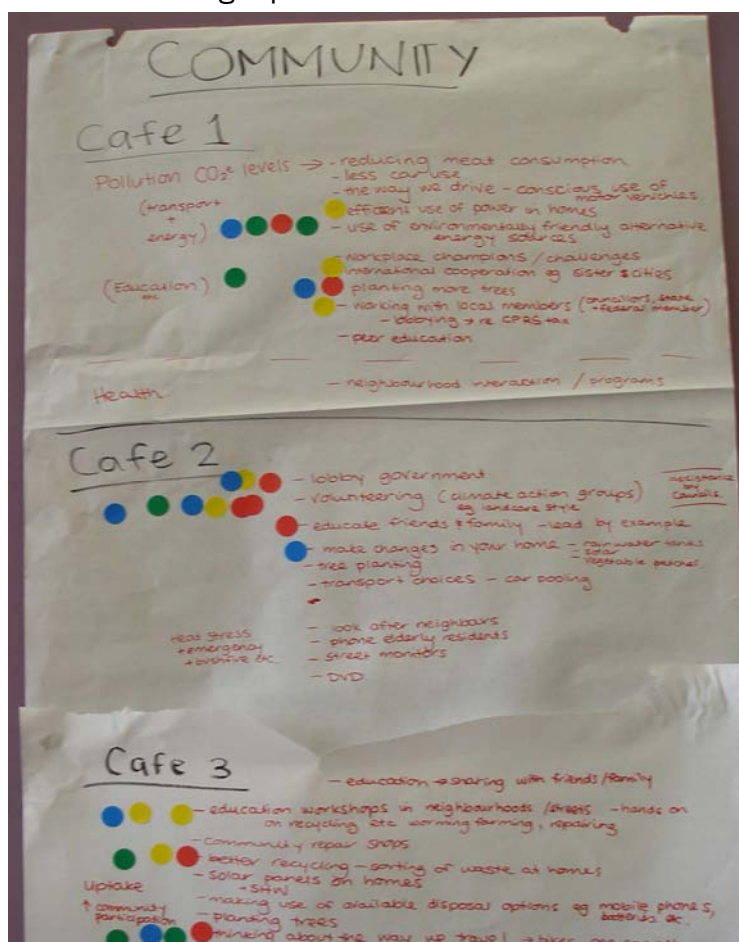 COMMUNITY
Cafe 1
Pollution CO2e levels → - reducing meat consumption
- less car use
- the way we drive - conscious use of
motor vehicles
(transport
+
energy)
efficient use of power in homes
- use of environmentally friendly alternative
energy sources
- workplace champions / challenges
international cooperation eg sister cities
(Education)
etc
planting more trees
- working with local members (councillors, state
+ federal member)
- lobbying → re CPRS tax
- peer education
Health
- neighbourhood interaction / programs
Cafe 2
- lobby government
- volunteering (climate action groups)
eg landcare style
assistance
by
councils.
- educate friends & family - lead by example
- make changes in your home - rainwater tanks
- solar
- vegetable patches
- tree planting
- transport choices - car pooling
Heat stress
+ emergency
+ bushfire etc.
- look after neighbours
- phone elderly residents
- street monitors
- DVD
Cafe 3
- education → sharing with friends/family
- education workshops in neighbourhoods /streets - hands on
on recycling etc worming farming, repairing
- community repair shops
- better recycling - sorting of waste at homes
- solar panels on homes
+ SHW
Uptake
↑ community
participation
- making use of available disposal options eg mobile phones,
batteries etc.
- planting trees
thinking about the way we travel →